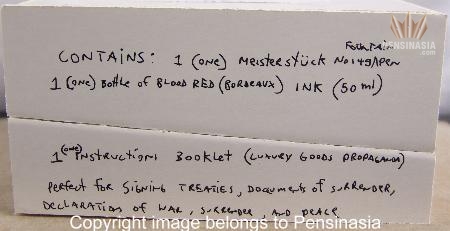 PENSINASIA.COM
FOUNTAIN
CONTAINS: 1 (ONE) MEISTERSTÜCK No 149/PEN
1 (ONE) BOTTLE OF BLOOD RED (BORDEAUX) INK (50 ml)
1 (ONE) INSTRUCTIONS BOOKLET (LUXURY GOODS PROPAGANDA)
PERFECT FOR SIGNING TREATIES, DOCUMENTS OF SURRENDER,
DECLARATION OF WAR, SURRENDER, AND PEACE
Copyright image belongs to Pensinasia